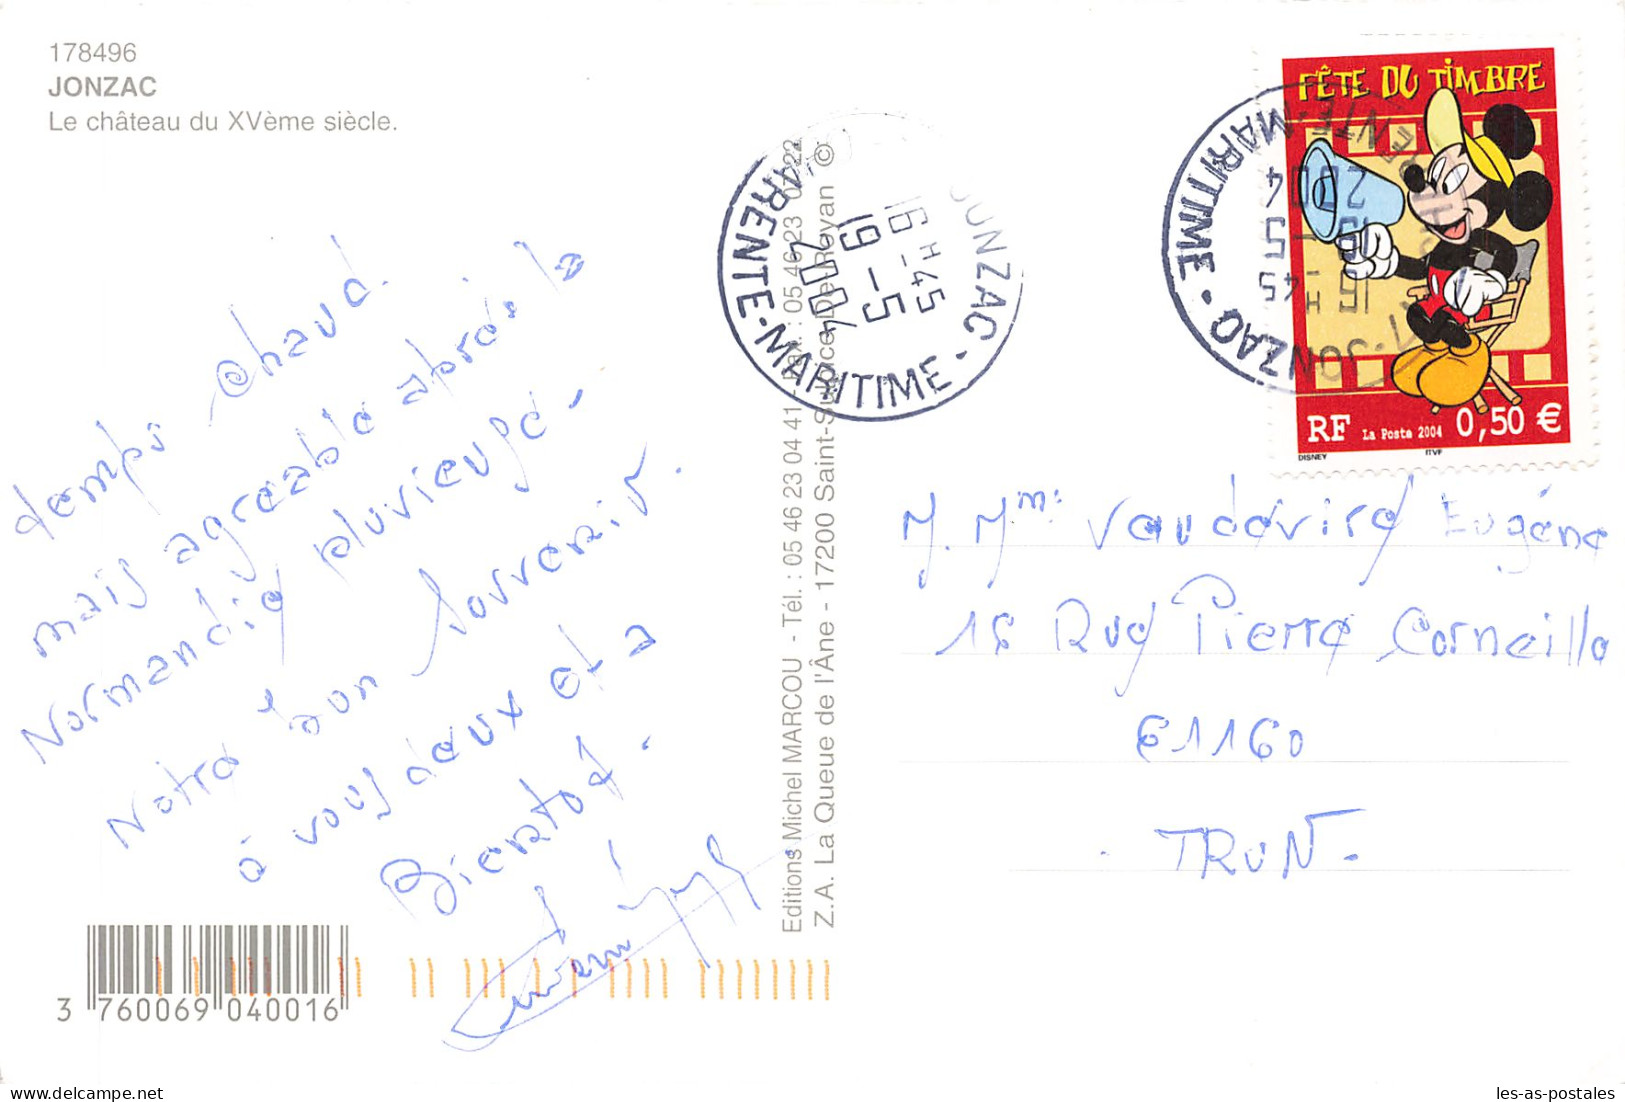 178496
JONZAC
Le château du XVème siècle.
temps chaud.
mais agreable après la
Normandie pluvieuse.
Notre bon souvenir
à vous deux et a
Bientôt.
3 760069 040016
Editions Michel MARCOU - Tél. : 05 46 23 04 41 - Fax : 05 46 23 02 22
Z.A. La Queue de l'Âne - 17200 Saint-Sulpice-De-Royan ©
JONZAC - CHARENTE-MARITIME
16 H 45
19 - 5
2004
JONZAC - CHARENTE-MARITIME
H 45
- 5
2004
FÊTE DU TIMBRE
RF La Poste 2004 0,50 €
DISNEY ITVF
M. Mme: Vaudévire Eugéne
16 Rue Pierre Corneille
61160
- TRUN -
Delcampe.net
les-as-postales